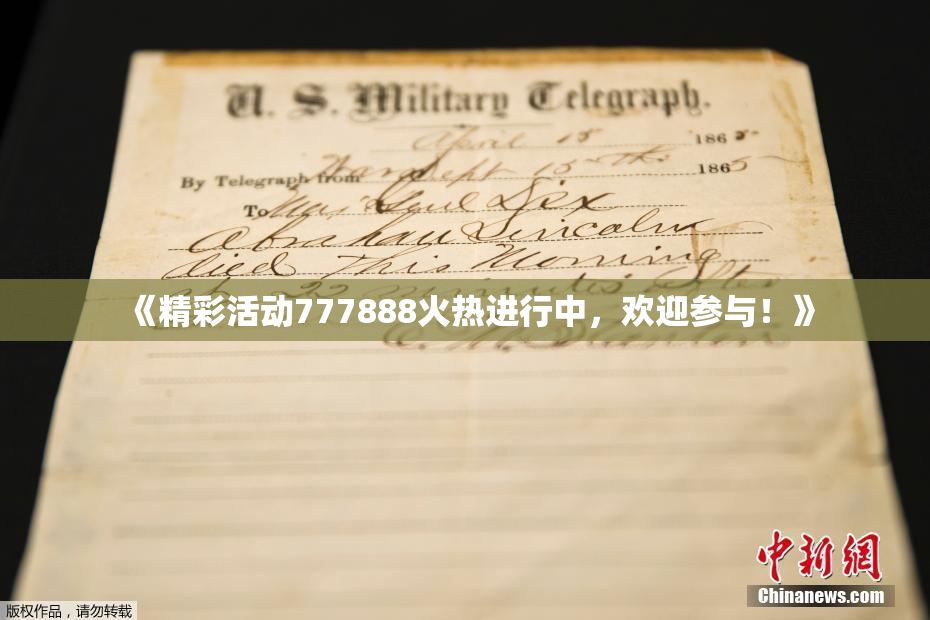 U. S. Military Telegraph.
April 15 1865
By Telegraph from War Dept 15th 1865
To Maj Genl Dix
Abraham Lincoln
died This Morning
at 22 minutes after
《精彩活动777888火热进行中，欢迎参与！》
E. M. Stanton
中新網
Chinanews.com
版权作品，请勿转载